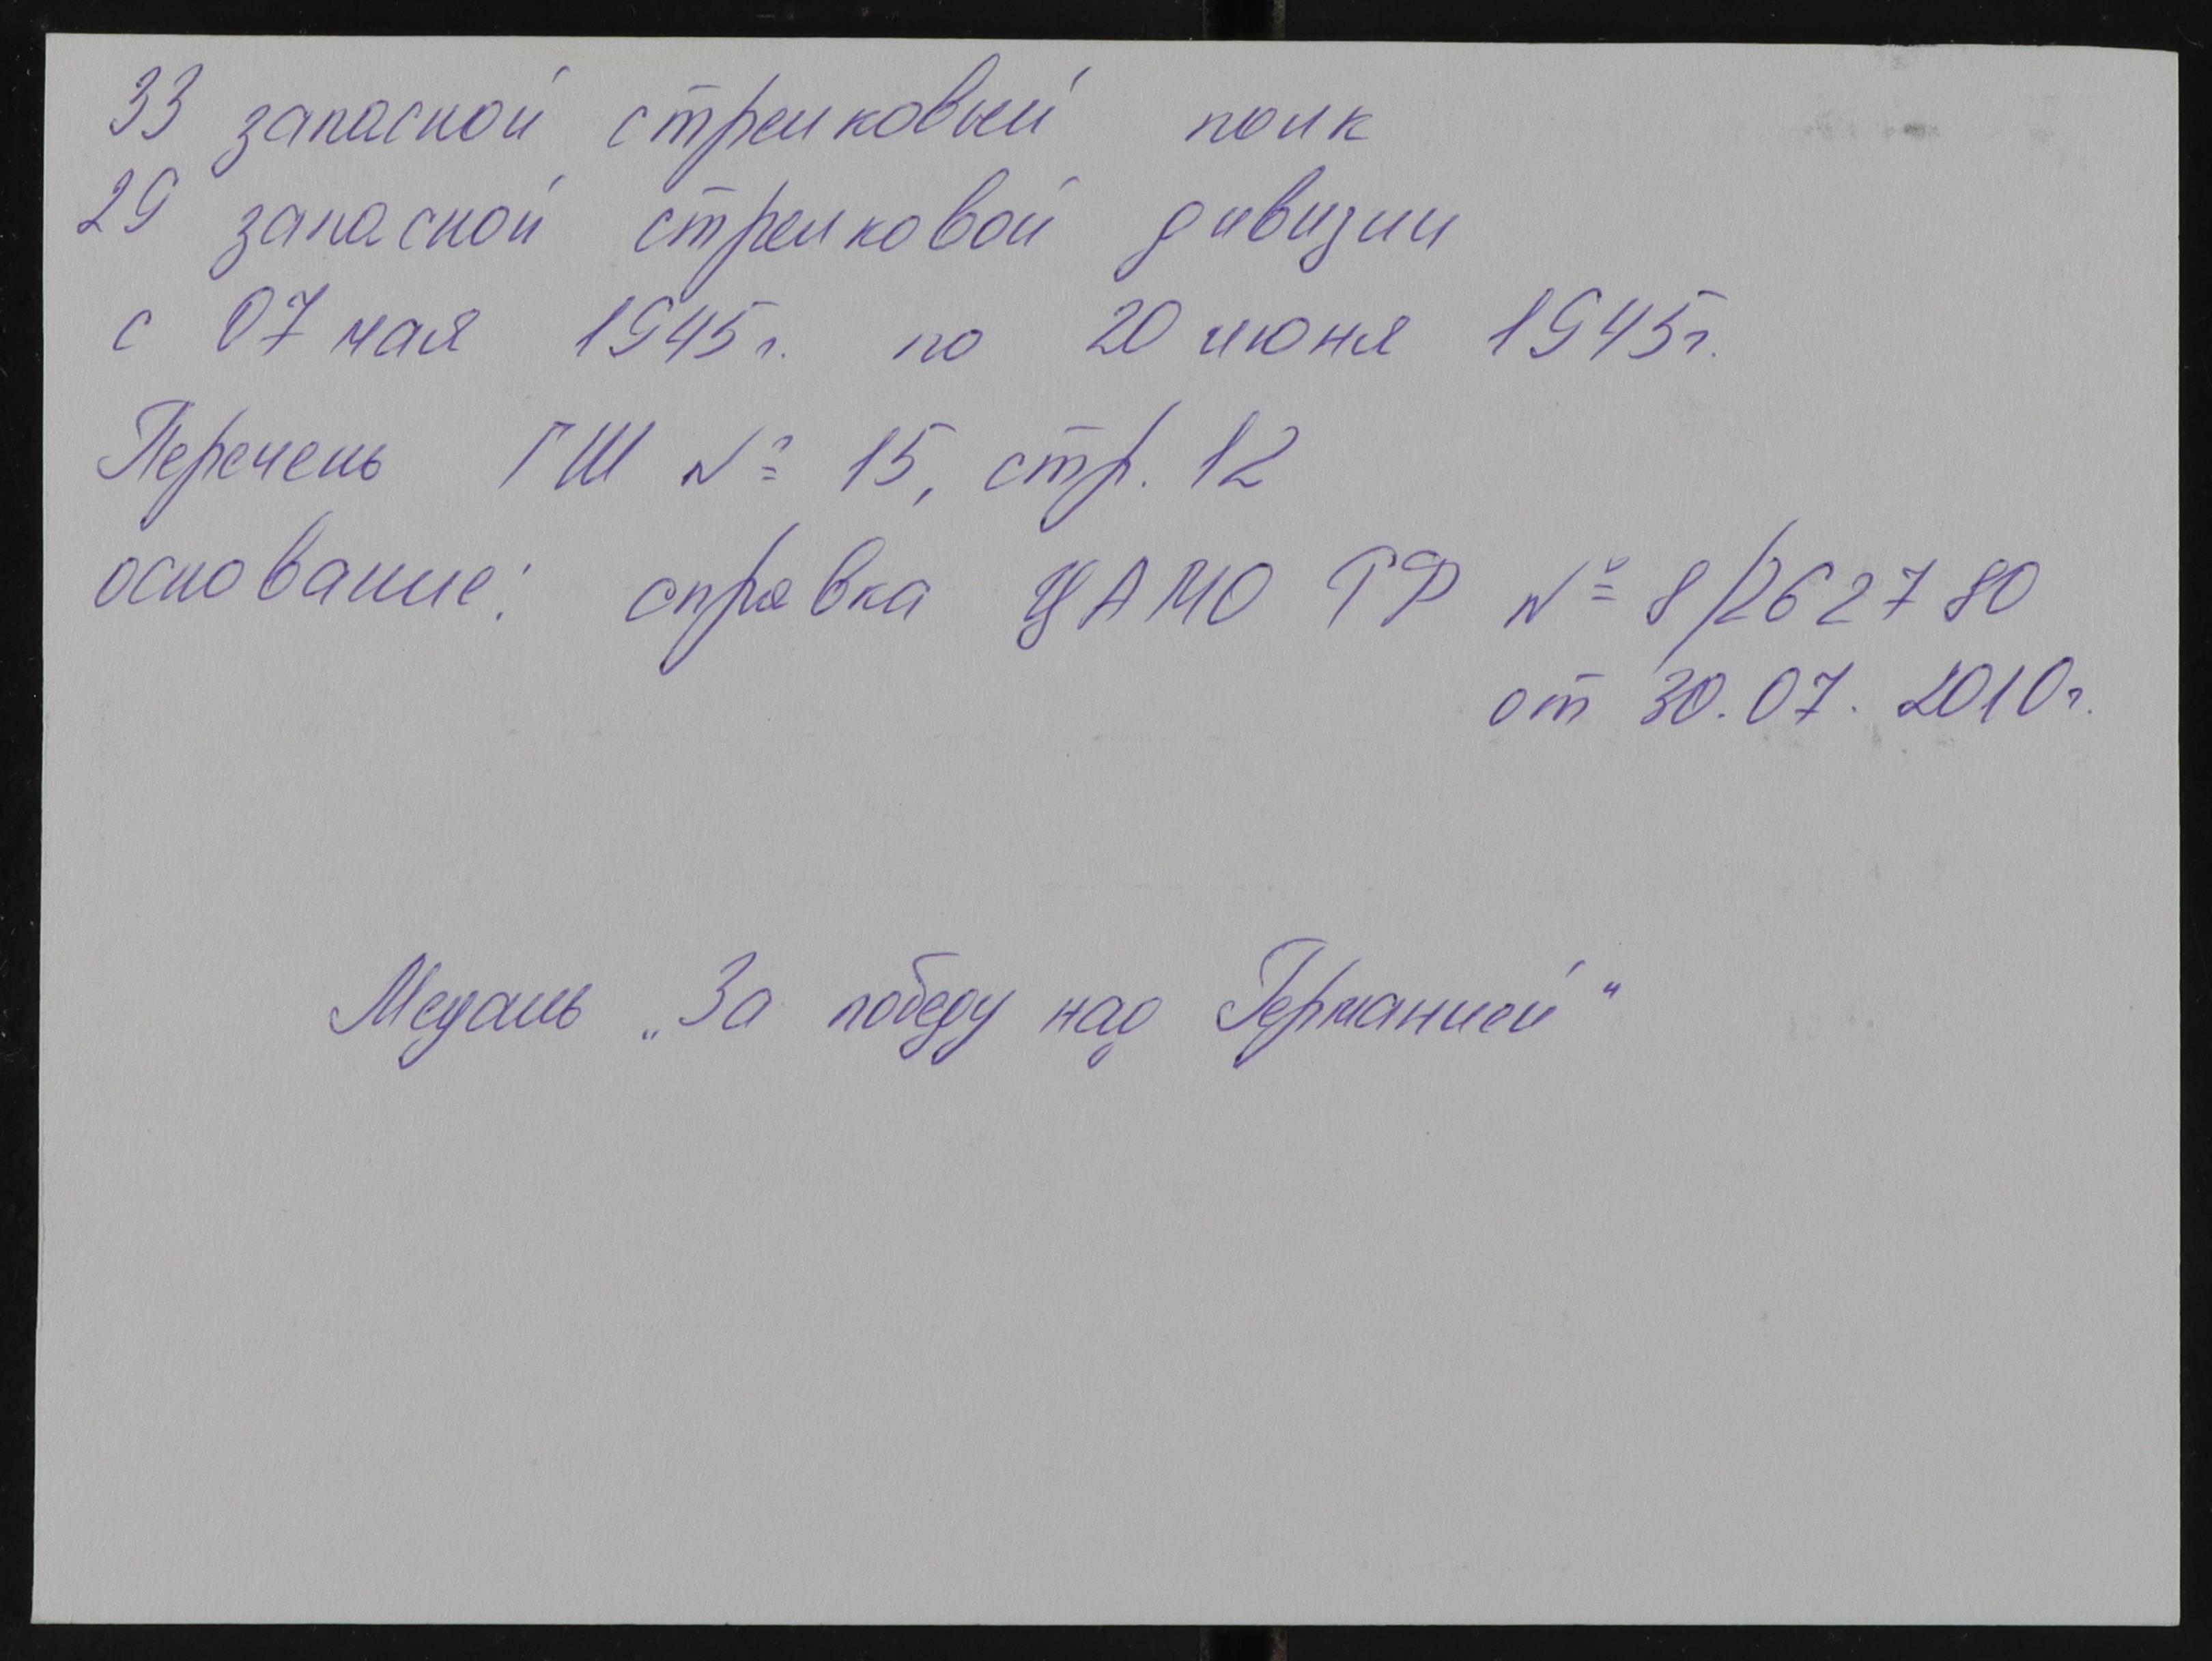 33 запасной стрелковый полк
29 запасной стрелковой дивизии
с 07 мая 1945г. по 20 июня 1945г.
Перечень ГШ № 15, стр. 12
основание: справка ЦАМО РФ № 8/262780
от 30.07.2010г.
Медаль „За победу над Германией“